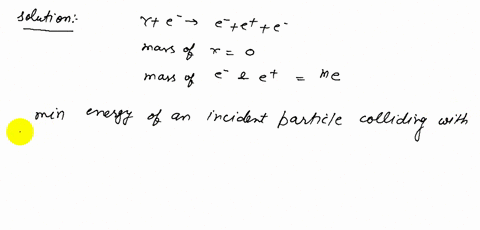 solution:-
γ + e⁻ → e⁻ + e⁺ + e⁻
mass of γ = 0
mass of e⁻ & e⁺ = me
min energy of an incident particle colliding with